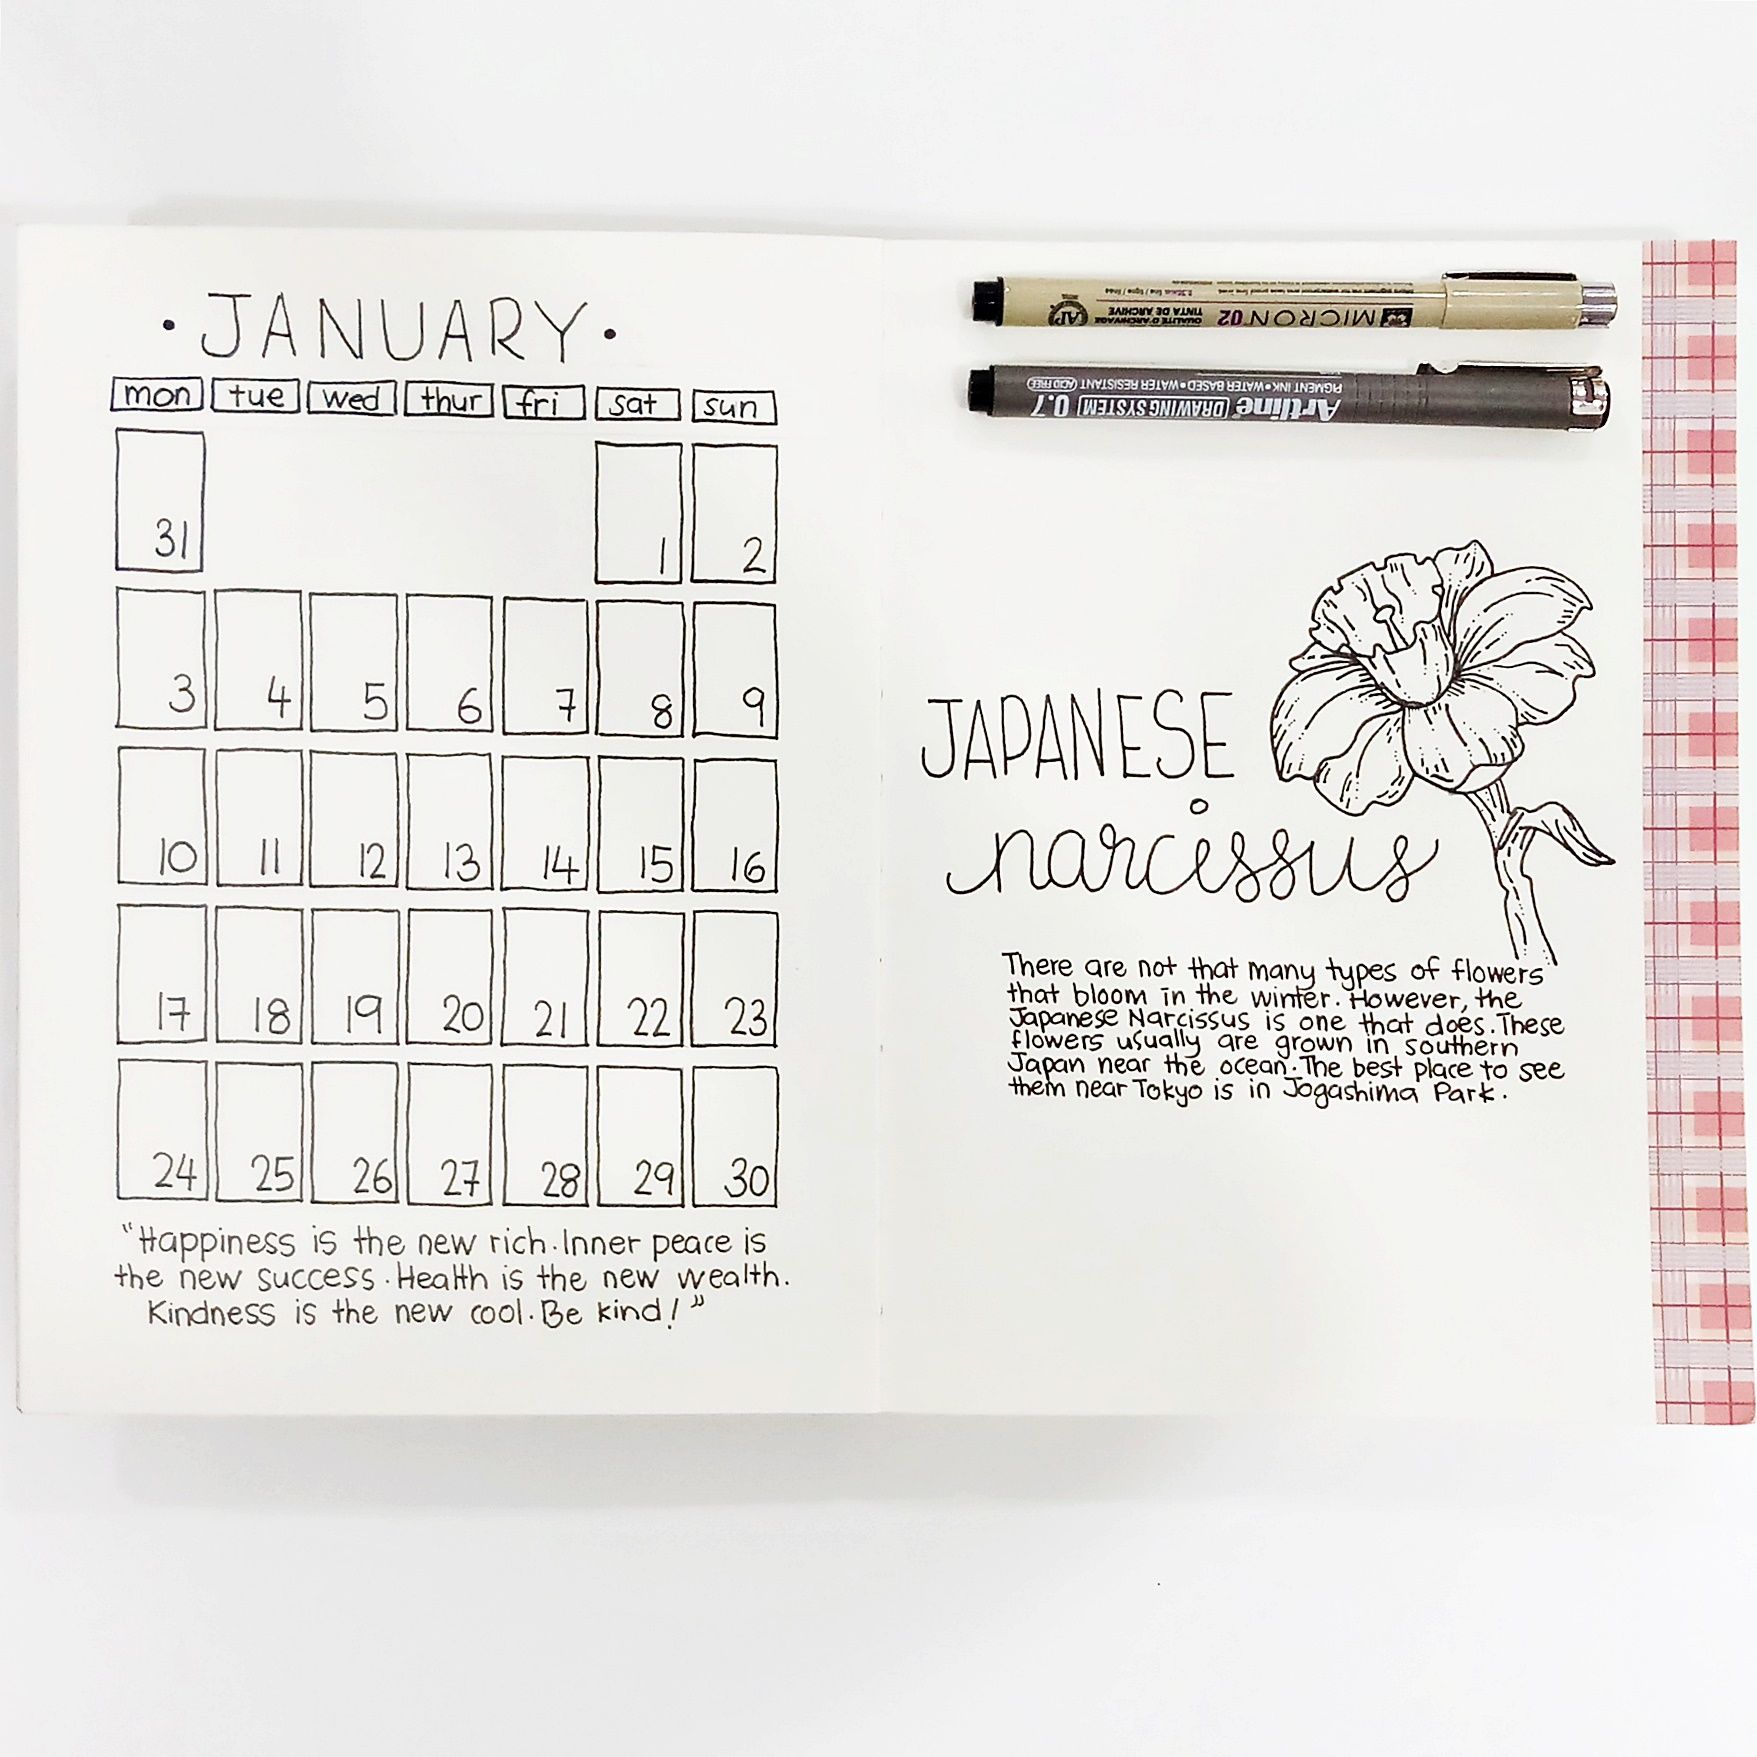 • JANUARY •
mon tue wed thur fri sat sun
31 1 2
3 4 5 6 7 8 9
10 11 12 13 14 15 16
17 18 19 20 21 22 23
24 25 26 27 28 29 30
"Happiness is the new rich. Inner peace is
the new success. Health is the new wealth.
Kindness is the new cool. Be kind!"
MICRON 02
QUALITÉ D'ARCHIVAGE
TINTA DE ARCHIVE
AP
Artline DRAWING SYSTEM 0.7
PIGMENT INK • WATER BASED • WATER RESISTANT ACID FREE
JAPANESE
narcissus
There are not that many types of flowers
that bloom in the winter. However, the
Japanese Narcissus is one that does. These
flowers usually are grown in southern
Japan near the ocean. The best place to see
them near Tokyo is in Jogashima Park.